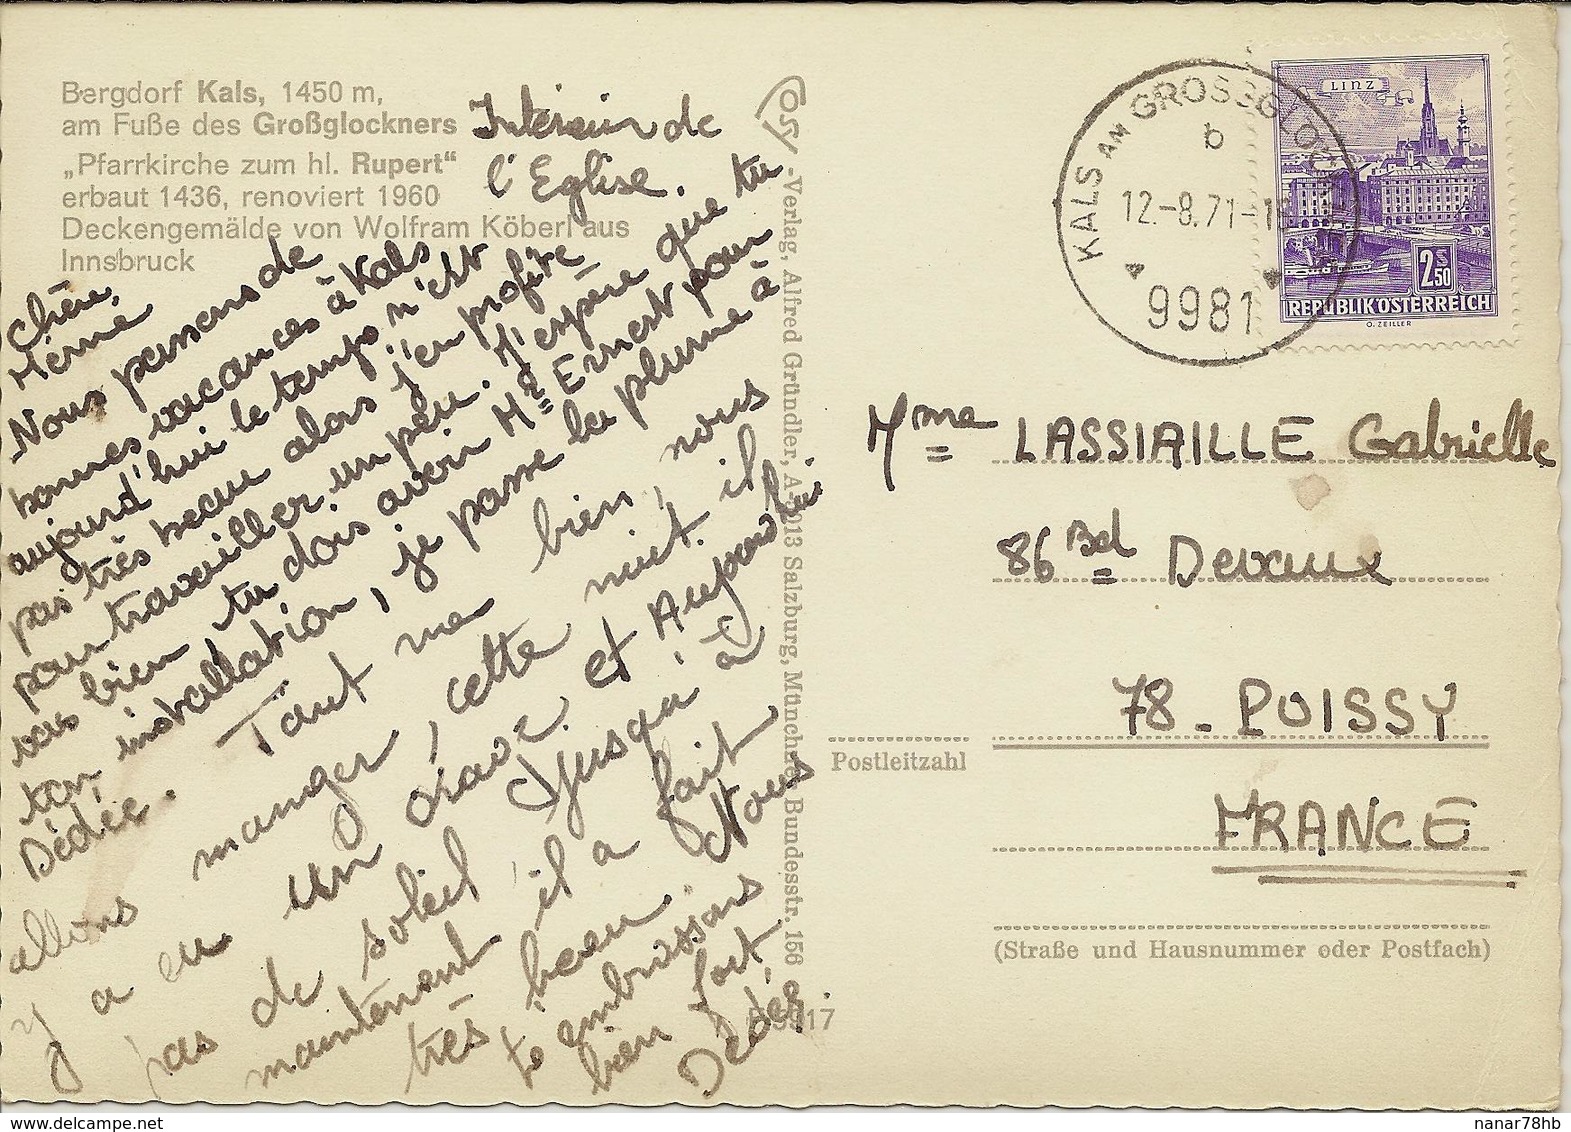 Bergdorf Kals, 1450 m,
am Fuße des Großglockners
„Pfarrkirche zum hl. Rupert“
erbaut 1436, renoviert 1960
Deckengemälde von Wolfram Köberl aus
Innsbruck
Intérieur de
l'Eglise.
Chère
Mémé
Nous passons de
bonnes vacances à Kals
aujourd'hui le temps n'est
pas très beau alors j'en profite
pour travailler un peu. J'espère que tu
vas bien tu dois avoir Mr Ernest pour
ton installation, je passe la plume à
Dédée.
Tout va bien, nous
allons manger, cette nuit il
y a eu un orage et Aujourd'hui
pas de soleil jusqu'à
maintenant il a fait
très beau. Nous
t'embrassons
bien fort
Dédée.
Cosy-Verlag, Alfred Gründler, A-5013 Salzburg, München, Bundesstr. 156
KALS AM GROSSGLOCKNER
b
12.-8.71-18
9981
LINZ
2.50
REPUBLIK ÖSTERREICH
O. ZEILLER
Mme LASSIAILLE Gabrielle
86 Bd Devaux
78 - POISSY
Postleitzahl
FRANCE
(Straße und Hausnummer oder Postfach)
delcampe.net
nanar78hb